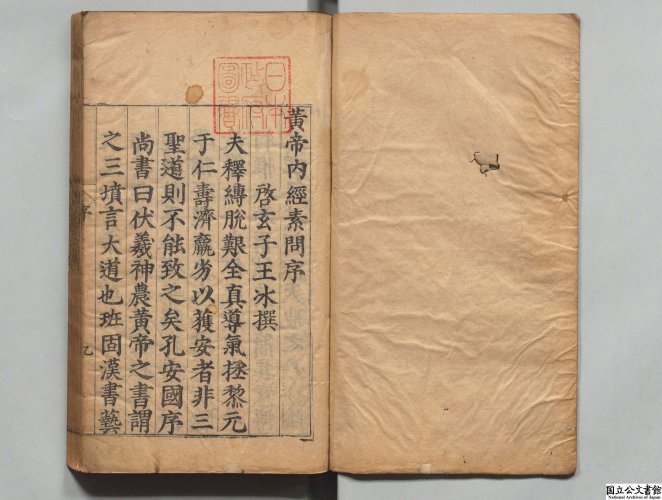 黃帝內經素問序
啓玄子王冰撰
夫釋縛脫艱全真導氣拯黎元
于仁壽濟羸劣以獲安者非三
聖道則不能致之矣孔安國序
尚書曰伏羲神農黃帝之書謂
之三墳言大道也班固漢書藝
序
乙
日本
政府
圖書
国立公文書館
National Archives of Japan